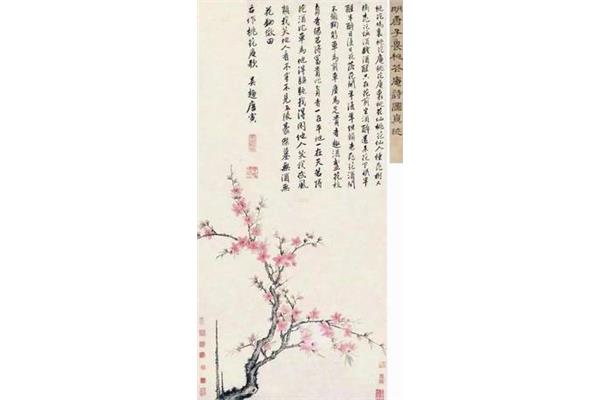 明唐子畏桃花庵詩圖真跡
桃花塢裏桃花庵桃花庵裏桃花仙桃花仙人種桃樹又
摘桃花換酒錢酒醒只在花前坐酒醉還來花下眠半
醒半醉日復日花落花開年復年但願老死花酒間
不願鞠躬車馬前車塵馬足貴者趣酒盞花枝
貧者緣若將富貴比貧者一在平地一在天若將
花酒比車馬他得驅馳我得閑他人笑我忒風
顛我笑他人看不穿不見五陵豪傑墓無酒無
花鋤做田
右作桃花庵歌 吳趨唐寅